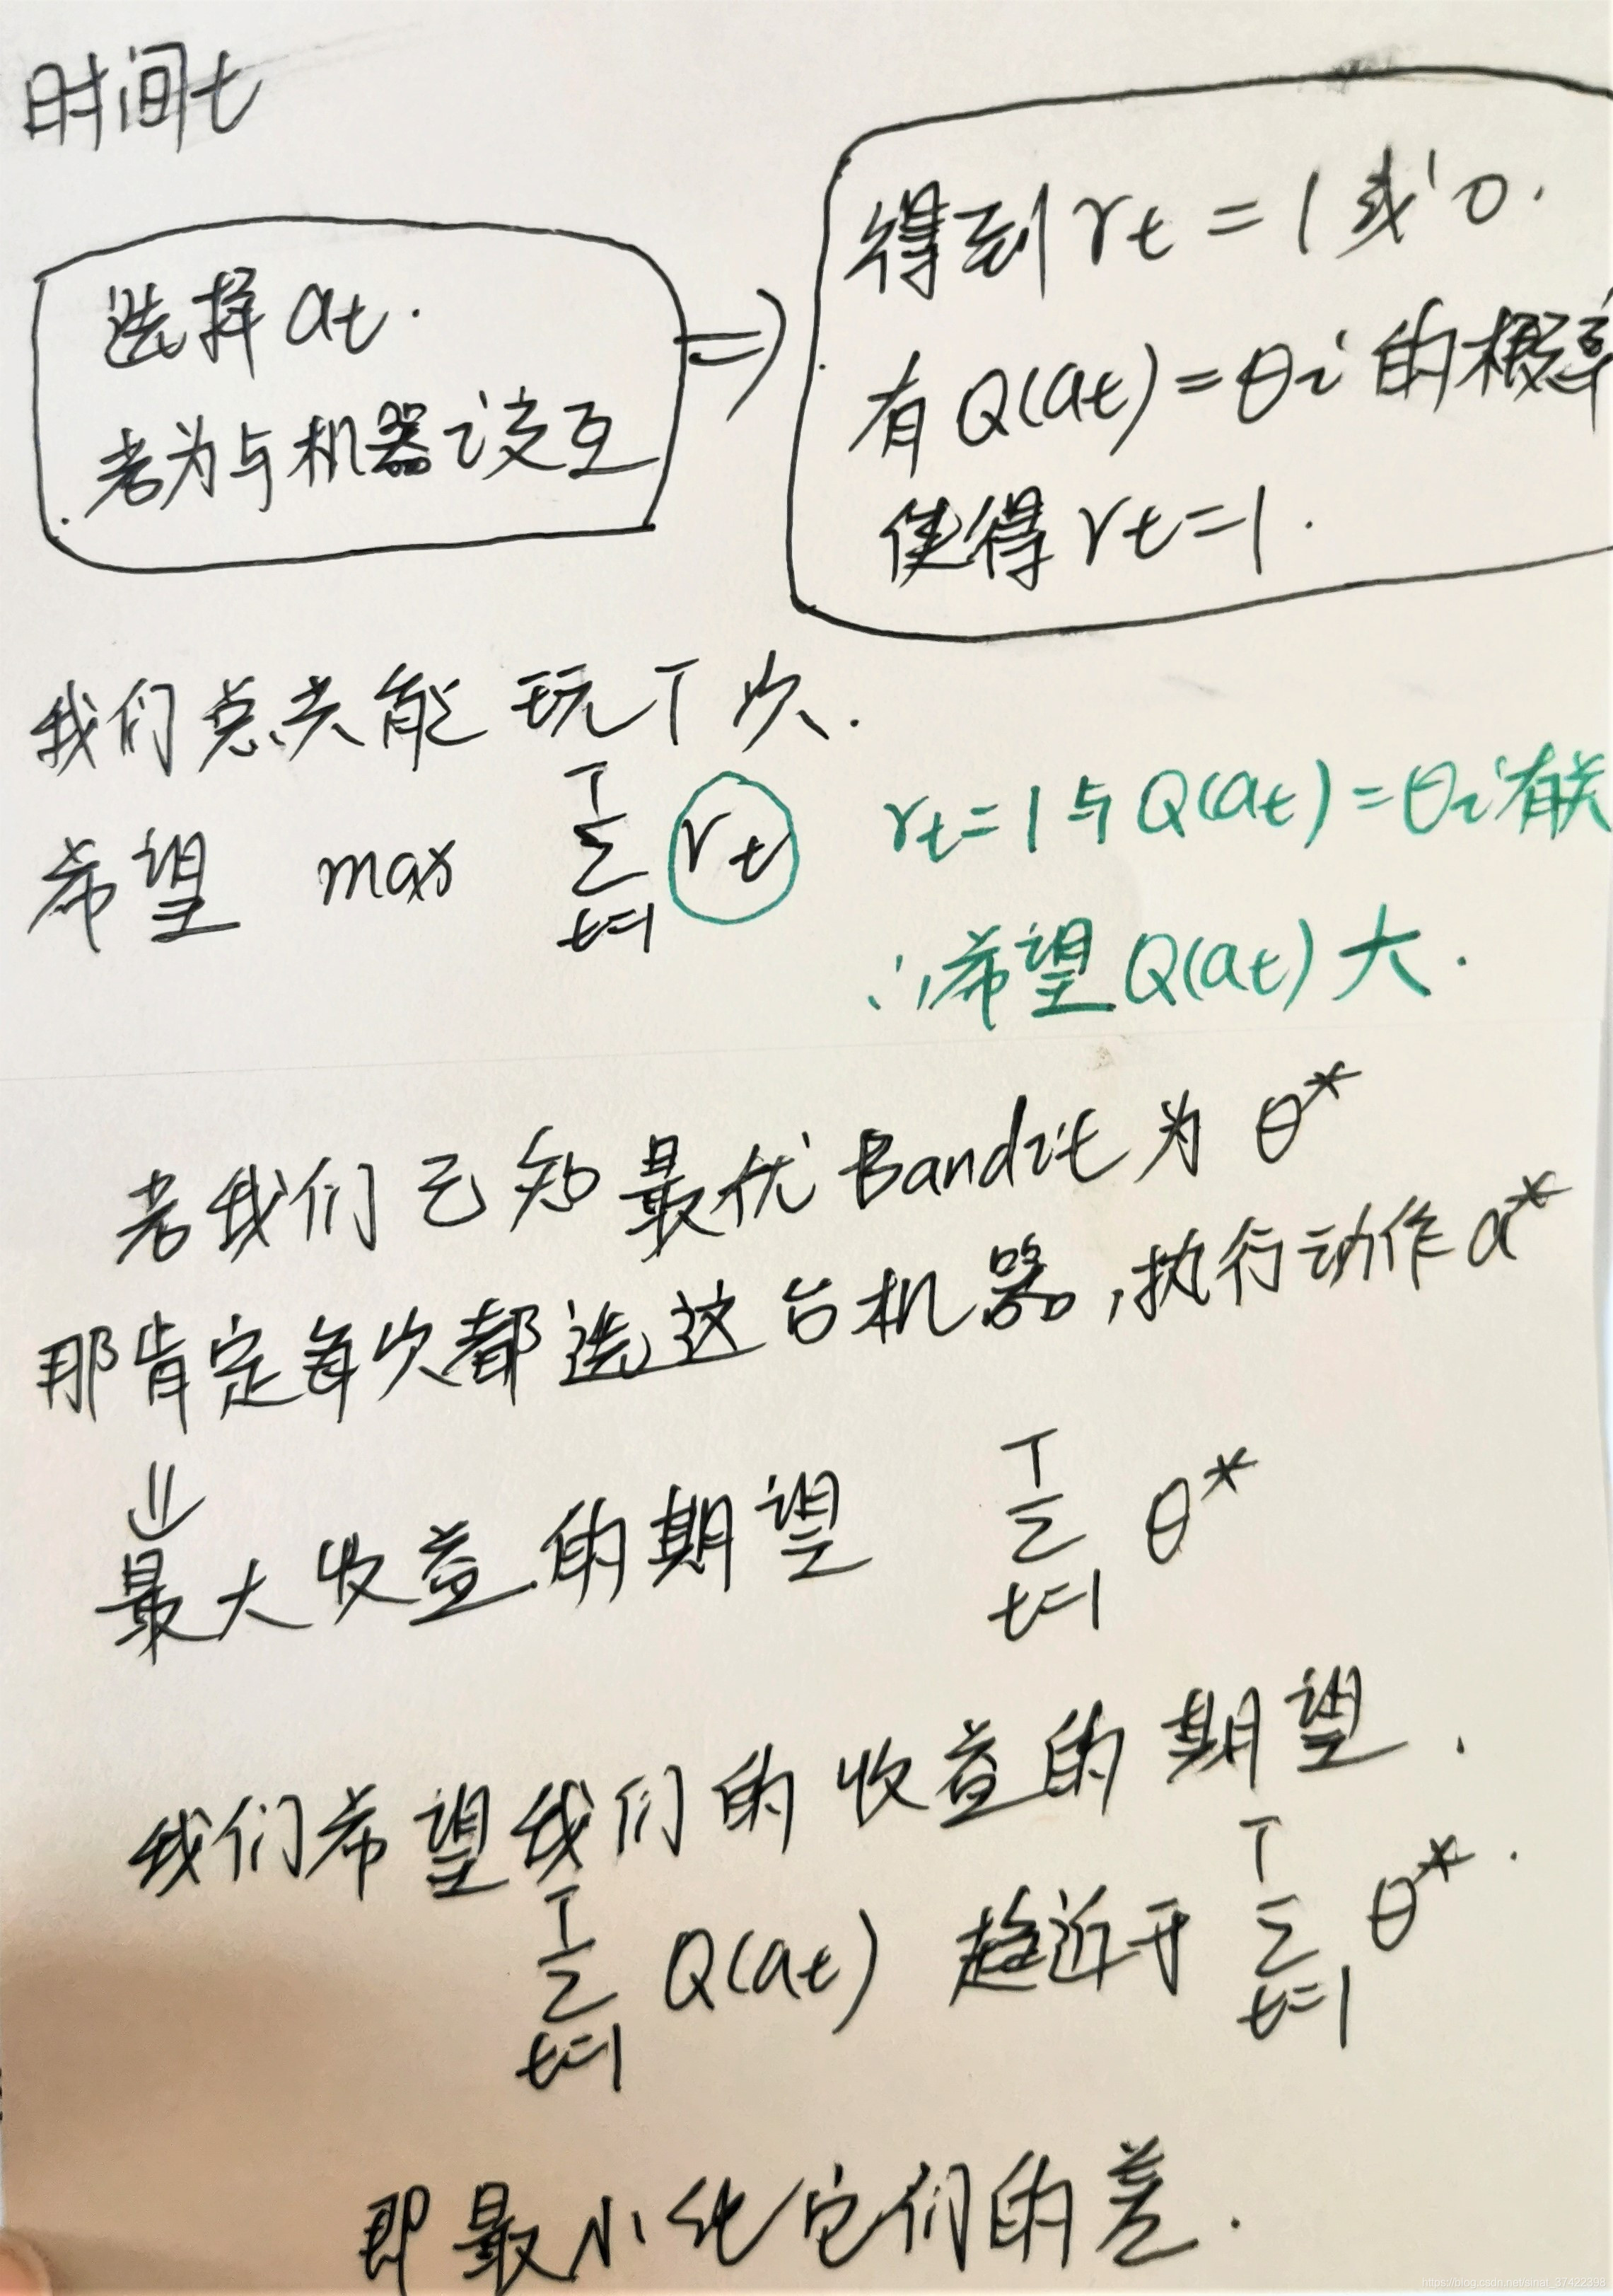 时间t
选择 at.
若为与机器i交互
⇒
得到 rt = 1 或 0.
有 Q(at) = θi 的概率
使得 rt=1.
我们总共能玩 T 次.
希望 max T∑t=1 rt
rt=1与Q(at)=θi有关
∴希望Q(at)大.
若我们已知最优Bandit为 θ*
那肯定每次都选这台机器,执行动作a*
⇓
最大收益的期望 T∑t=1 θ*
我们希望我们的收益的期望.
T∑t=1 Q(at) 趋近于 T∑t=1 θ*.
即最小化它们的差.